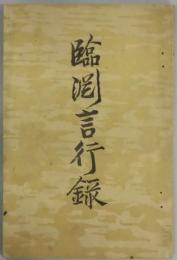 臨渕言行録